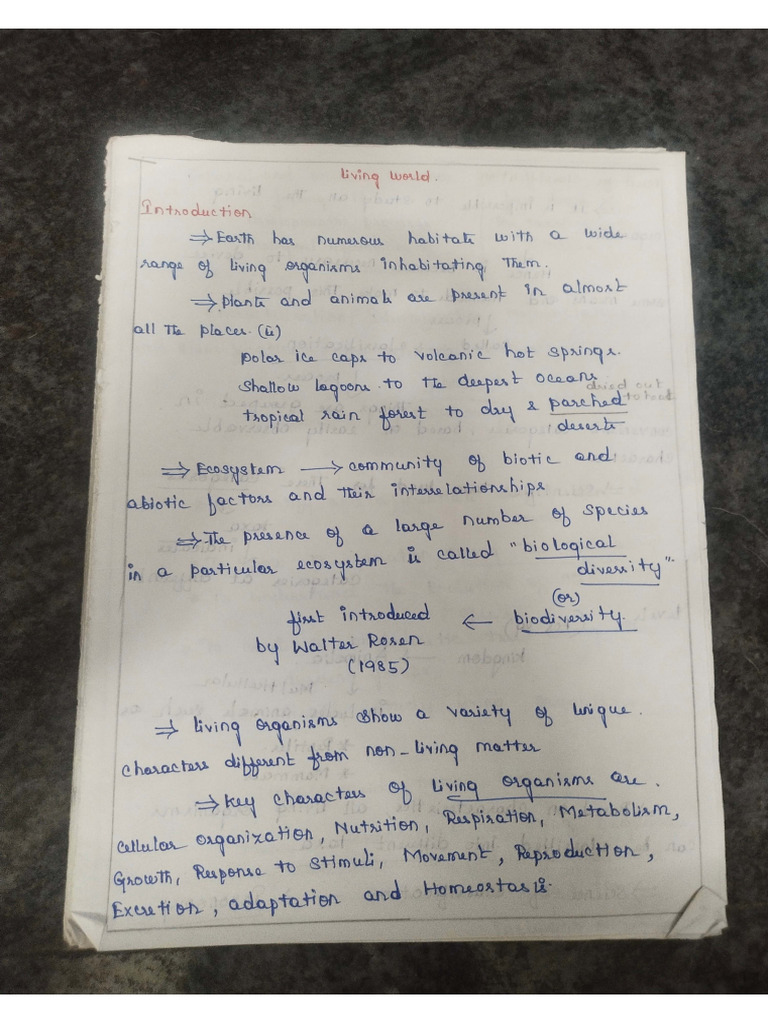 Living World.
Introduction
⇒ Earth has numerous habitats with a wide
range of living organisms inhabitating them.
⇒ plants and animals are present in almost
all the places. (ii)
polar ice caps to volcanic hot springs.
shallow lagoons to the deepest oceans
dried out
tropical rain forest to dry & parched
deserts
⇒ Ecosystem → community of biotic and
abiotic factors and their interrelationships
⇒ The presence of a large number of species
in a particular ecosystem is called "biological
diversity"
(or)
first introduced ← biodiversity.
by Walter Rosen
(1985)
⇒ living organisms show a variety of unique
characters different from non-living matter
⇒ key characters of living organisms are.
cellular organization, Nutrition, Respiration, Metabolism,
Growth, Response to stimuli, Movement, Reproduction,
Excretion, adaptation and Homeostasis.